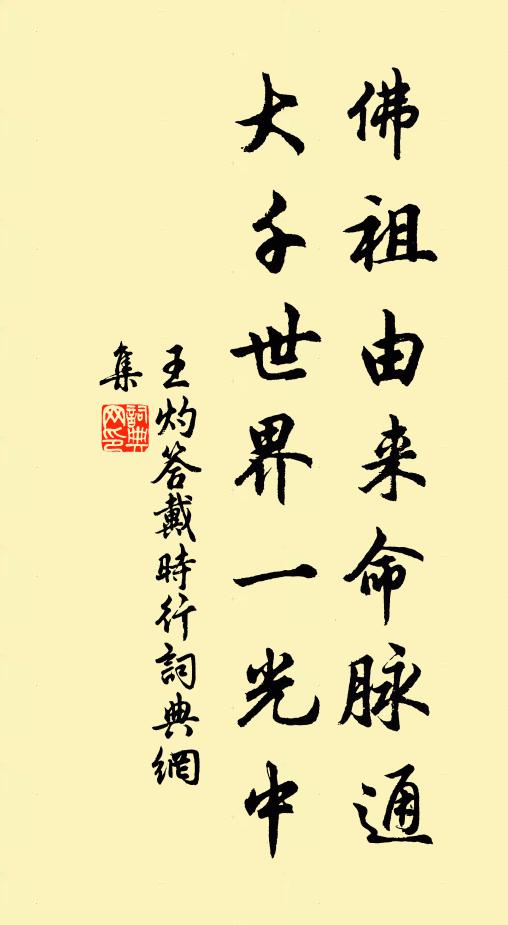 佛祖由来命脉通
大千世界一光中
王灼答戴時行詞典網
集
詞典网印